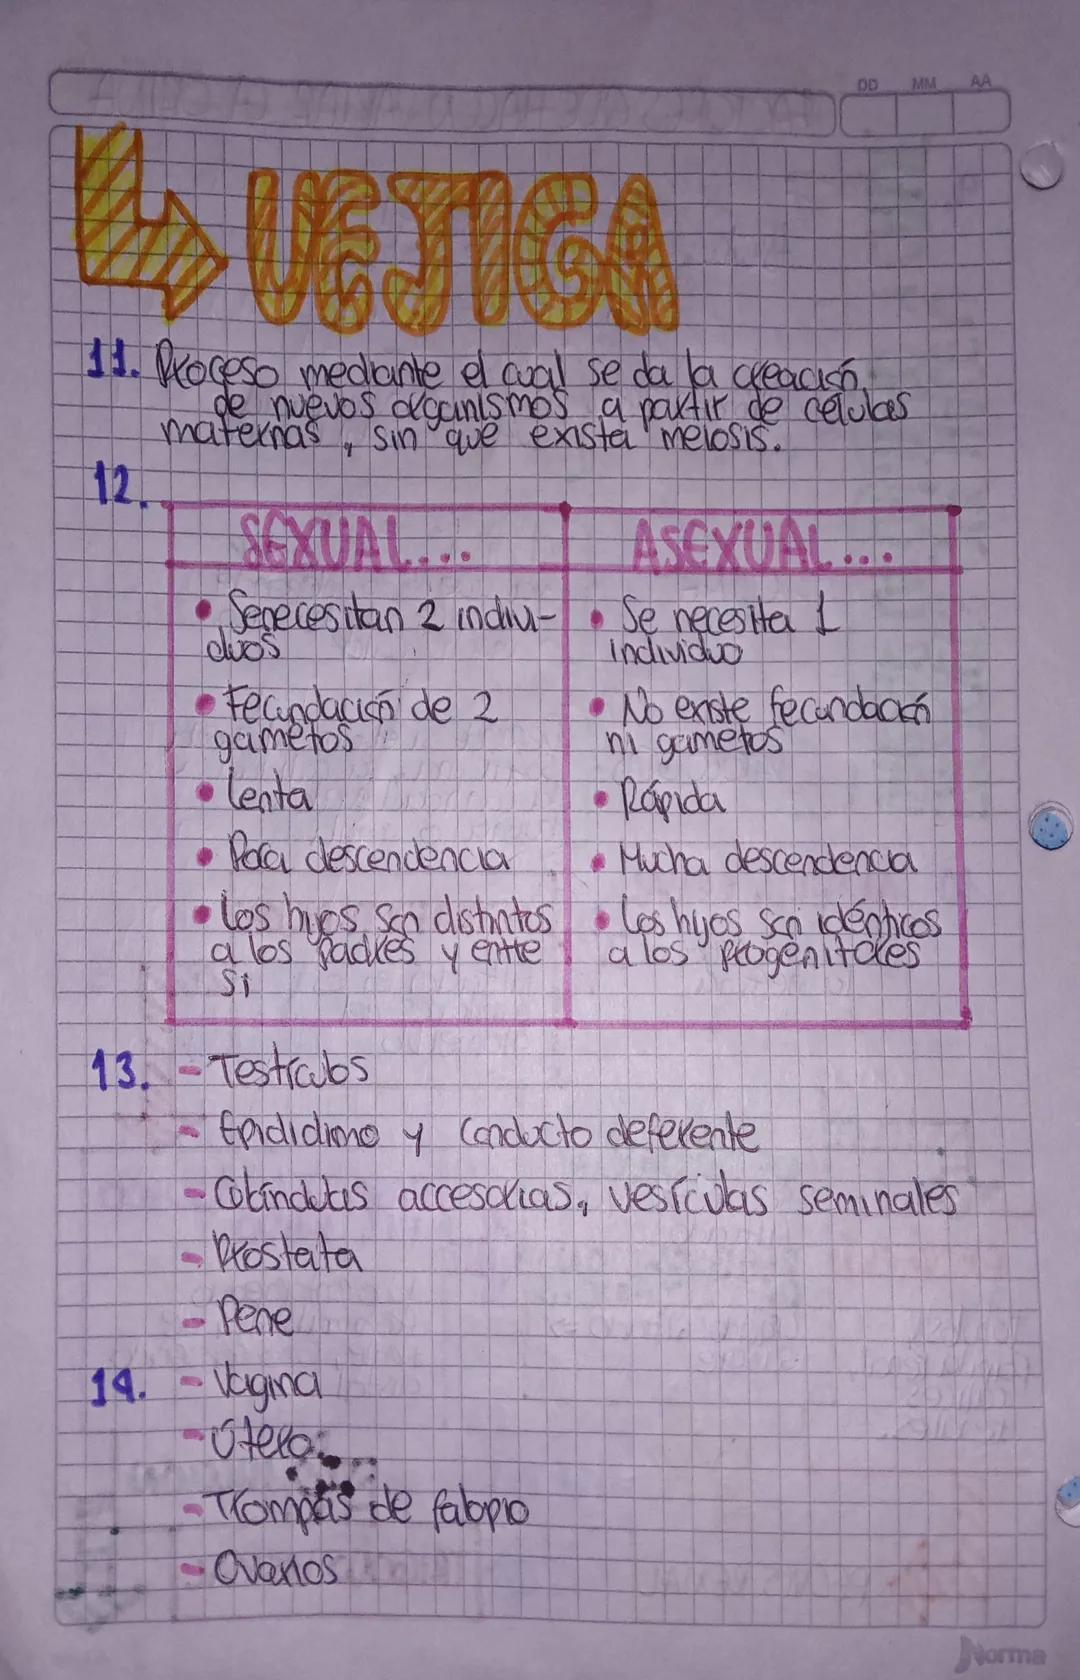 DD MM AA
VEJIGA
11. Proceso mediante el cual se da la creación
de nuevos organismos a partir de células
maternas, sin que exista meiosis.
12.
SEXUAL...
• Se necesitan 2 indivi-
duos
• Fecundación de 2
gametos
• Lenta
• Poca descendencia
• Los hijos son distintos
a los padres y entre
si
ASEXUAL...
• Se necesita 1
individuo
• No existe fecundación
ni gametos
• Rápida
• Mucha descendencia
• Los hijos son idénticos
a los progenitores
13. - Testículos
- Epididimo y conducto deferente
- Glándulas accesorias, vesículas seminales
- Prostata
- Pene
14. - Vagina
- Útero
- Trompas de falopio
- Ovarios
Norma